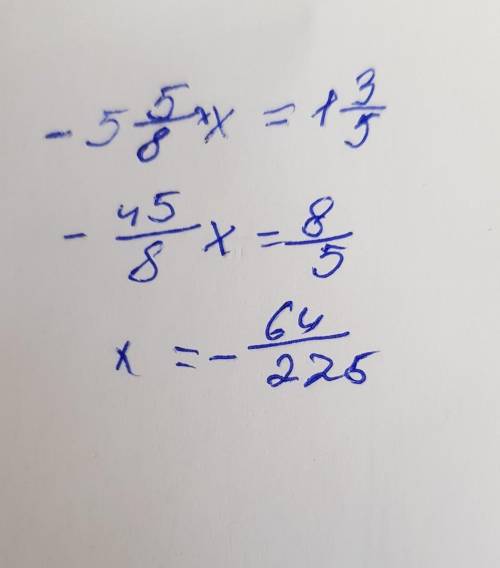 - 5 5/8 · x = 1 3/5
- 45/8 x = 8/5
x = - 64/225